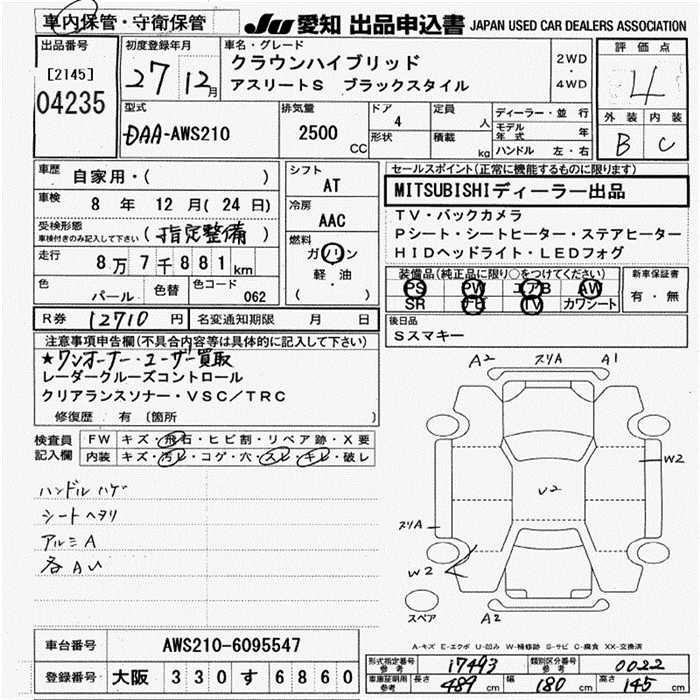 車内保管・守衛保管
JU 愛知 出品申込書 JAPAN USED CAR DEALERS ASSOCIATION
出品番号
[2145]
04235
初度登録年月
27 12月
車名・グレード
クラウンハイブリッド
アスリートS ブラックスタイル
2WD
・
4WD
評価点
4
外装 内装
B C
型式
DAA-AWS210
排気量
2500
CC
ドア
4
形状
定員
人
積載
kg
ディーラー・並行
モデル年式 年
ハンドル 左・右
車歴
自家用・( )
車検
8年 12月(24日)
受検形態
車検付きのみ記入して下さい
(指定整備)
走行
8万7千881km
色
パール
色替
色コード
062
シフト
AT
冷房
AAC
燃料
ガソリン
軽・油
( )
セールスポイント(正常に機能するものに限ります)
MITSUBISHIディーラー出品
TV・バックカメラ
Pシート・シートヒーター・ステアヒーター
HIDヘッドライト・LEDフォグ
装備品(純正品に限り○をつけてください)
PS PW エアB AW
SR ナビ TV カワシート
新車保証書
有・無
R券 12710円
名変通知期限 月 日
後日品
Sスマキー
注意事項申告欄(不具合内容等は具体的に記入して下さい)
★ワンオーナー・ユーザー買取
レーダークルーズコントロール
クリアランスソナー・VSC/TRC
修復歴 有 (箇所 )
検査員記入欄
FW キズ・飛石・ヒビ割・リペア跡・X要
内装 キズ・汚レ・コゲ・穴・スレ・キレ・破レ
ハンドルハゲ
シートヘタリ
アルミA
各AU
A2 スリA A1
W2
U2
スリA
W2
スペア
A2
A-キズ E-エクボ U-凹み W-補修跡 S-サビ C-腐食 XX-交換済
車台番号 AWS210-6095547
登録番号 大阪 330 す 6860
形式指定番号 参考 17493
類別区分番号 参考 0022
車庫証明用 参考 長さ 489cm 幅 180cm 高さ 145cm